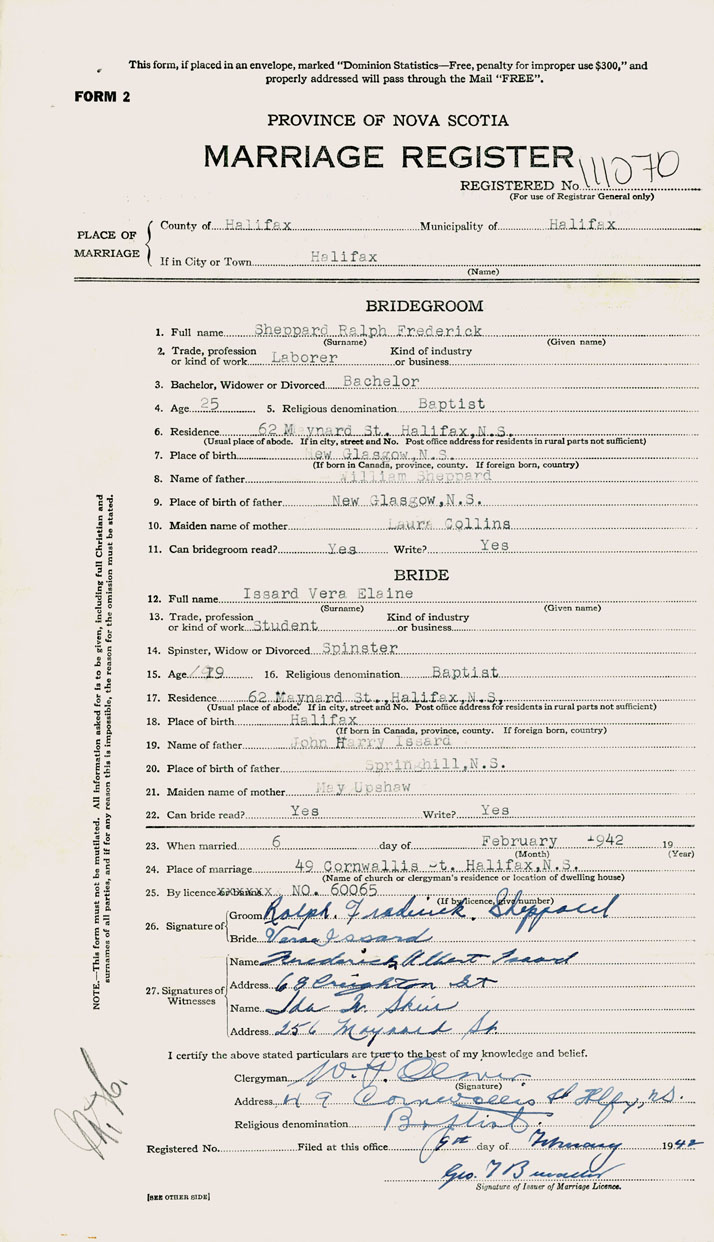 This form, if placed in an envelope, marked "Dominion Statistics—Free, penalty for improper use $300," and
properly addressed will pass through the Mail "FREE".
FORM 2
PROVINCE OF NOVA SCOTIA
MARRIAGE REGISTER
REGISTERED No. 111070
(For use of Registrar General only)
PLACE OF MARRIAGE
County of Halifax Municipality of Halifax
If in City or Town Halifax
(Name)
BRIDEGROOM
1. Full name Sheppard Ralph Frederick
(Surname) (Given name)
2. Trade, profession or kind of work Laborer Kind of industry or business
3. Bachelor, Widower or Divorced Bachelor
4. Age 25 5. Religious denomination Baptist
6. Residence 62 Maynard St. Halifax,N.S.
(Usual place of abode. If in city, street and No. Post office address for residents in rural parts not sufficient)
7. Place of birth New Glasgow,N.S.
(If born in Canada, province, county. If foreign born, country)
8. Name of father William Sheppard
9. Place of birth of father New Glasgow,N.S.
10. Maiden name of mother Laura Collins
11. Can bridegroom read? Yes Write? Yes
BRIDE
12. Full name Issard Vera Elaine
(Surname) (Given name)
13. Trade, profession or kind of work Student Kind of industry or business
14. Spinster, Widow or Divorced Spinster
15. Age 19 16. Religious denomination Baptist
17. Residence 62 Maynard St.,Halifax,N.S,
(Usual place of abode. If in city, street and No. Post office address for residents in rural parts not sufficient)
18. Place of birth Halifax
(If born in Canada, province, county. If foreign born, country)
19. Name of father John Harry Issard
20. Place of birth of father Springhill,N.S.
21. Maiden name of mother May Upshaw
22. Can bride read? Yes Write? Yes
23. When married 6 day of February 1942 19
(Month) (Year)
24. Place of marriage 49 Cornwallis St. Halifax,N.S.
(Name of church or clergyman's residence or location of dwelling house)
25. By licence NO. 60065
(If by licence, give number)
26. Signature of
Groom Ralph. Frederick. Sheppard
Bride Vera Issard
27. Signatures of Witnesses
Name Frederick Albert Issard
Address 68 Creighton St
Name Ida W.
Address 256 Maynard St.
I certify the above stated particulars are true to the best of my knowledge and belief.
Clergyman W. P. Oliver
(Signature)
Address 49 Cornwallis St Hlfx, N.S.
Religious denomination Baptist
Registered No. Filed at this office 9th day of February 1942
Geo.
Signature of Issuer of Marriage Licence.
[SEE OTHER SIDE]
NOTE.—This form must not be mutilated. All information asked for is to be given, including full Christian and
surnames of all parties, and if for any reason this is impossible, the reason for the omission must be stated.